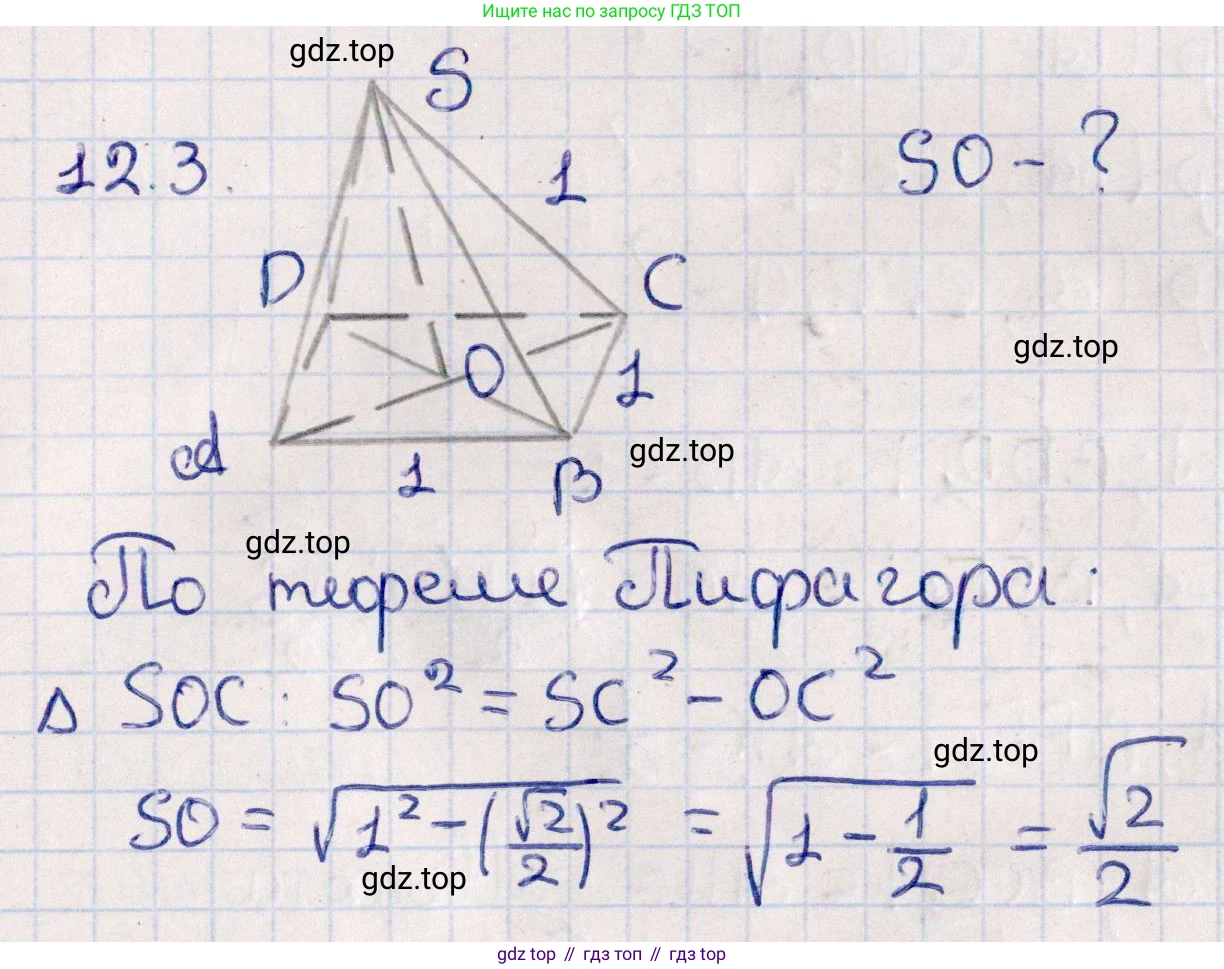 Ищите нас по запросу ГДЗ ТОП
gdz.top
S
12.3.
1
SO - ?
D
C
gdz.top
O
1
A
gdz.top
1
B
gdz.top
По теореме Пифагора:
Δ SOC: SO² = SC² - OC²
gdz.top
SO = √(1² - (√2/2)²) = √(1 - 1/2) = √2/2
gdz.top
gdz top // гдз топ // гдз top